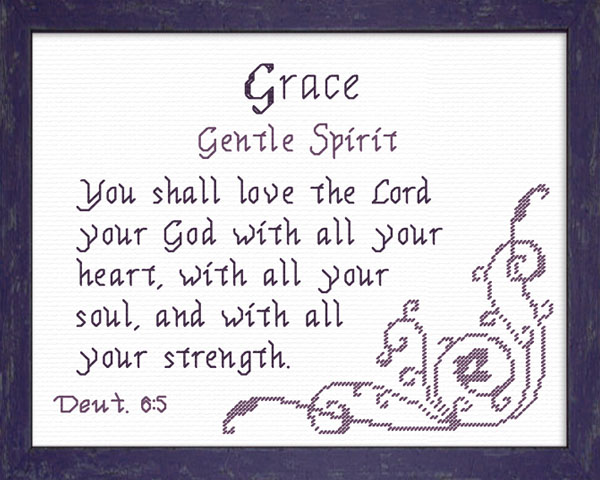 Grace
Gentle Spirit
You shall love the Lord
your God with all your
heart, with all your
soul, and with all
your strength.
Deut. 6:5